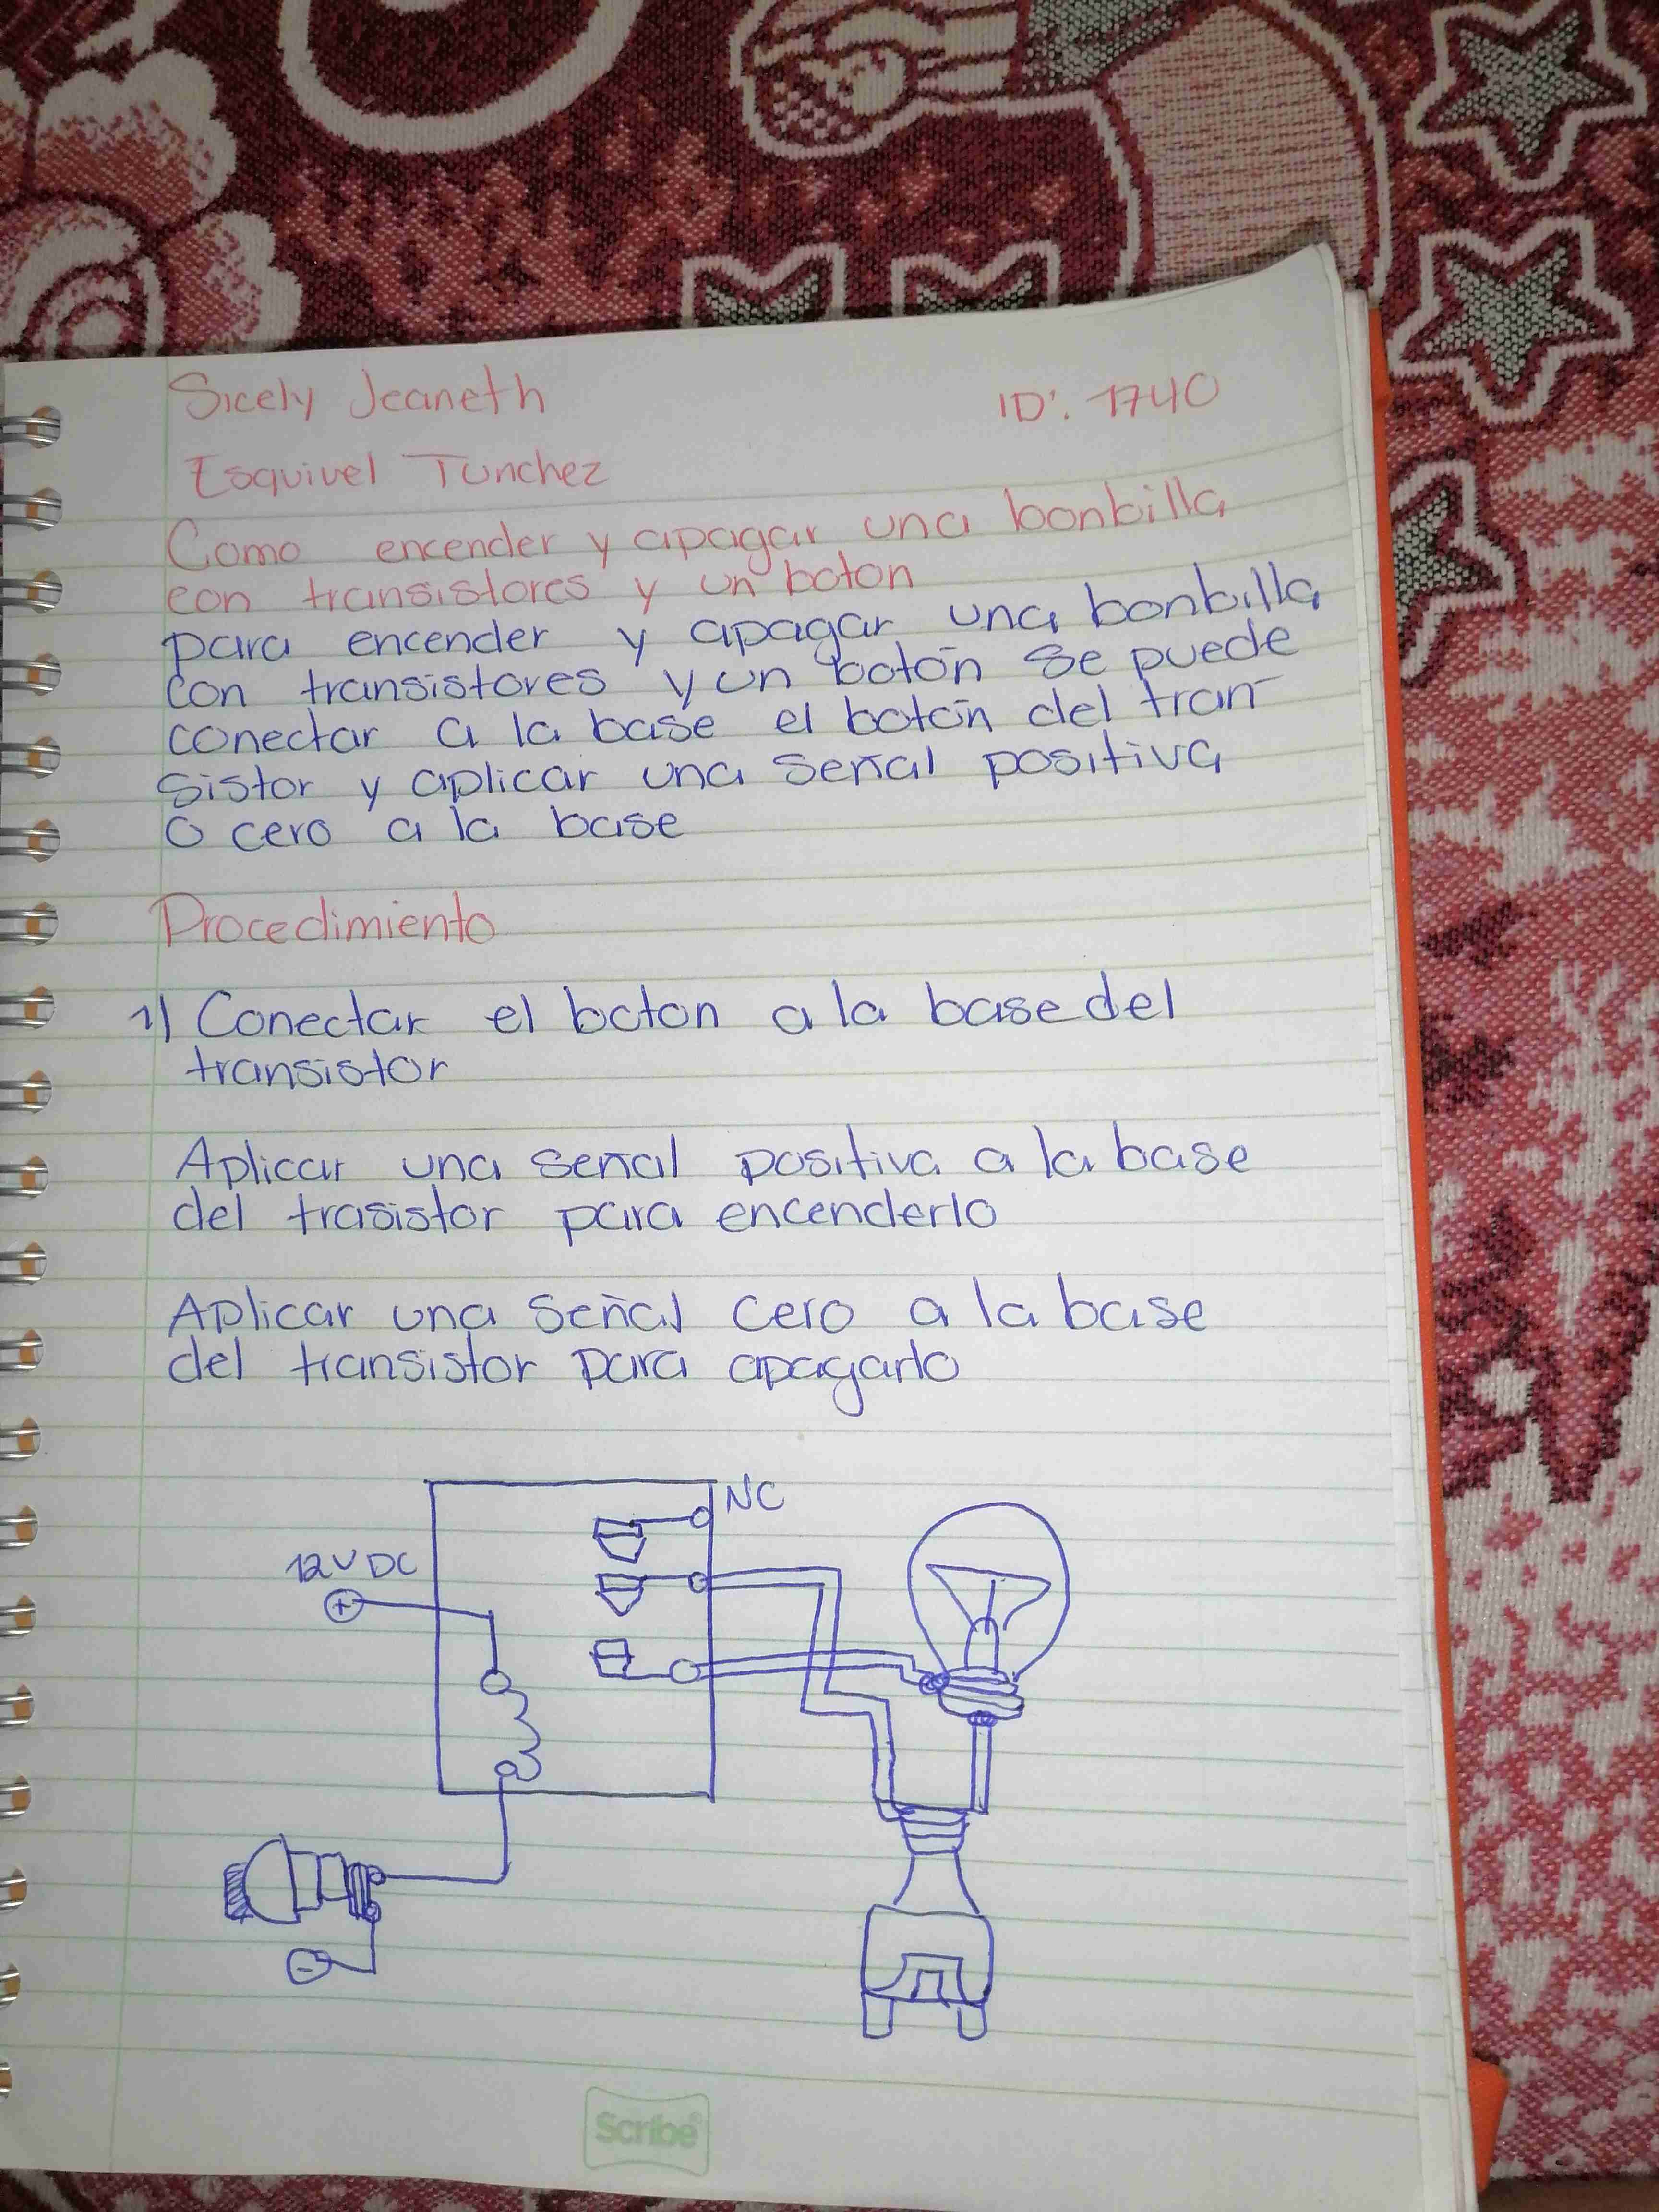 Sicely Jeaneth
ID: 1740
Esquivel Tunchez
Como encender y apagar una bonbilla
con transistores y un boton
para encender y apagar una bonbilla
con transistores y un botón se puede
conectar a la base el botón del tran-
sistor y aplicar una señal positiva
o cero a la base
Procedimiento
1) Conectar el boton a la base del
transistor
Aplicar una señal positiva a la base
del trasistor para encenderlo
Aplicar una señal cero a la base
del transistor para apagarlo
NC
12V DC
+
-
Scribe®